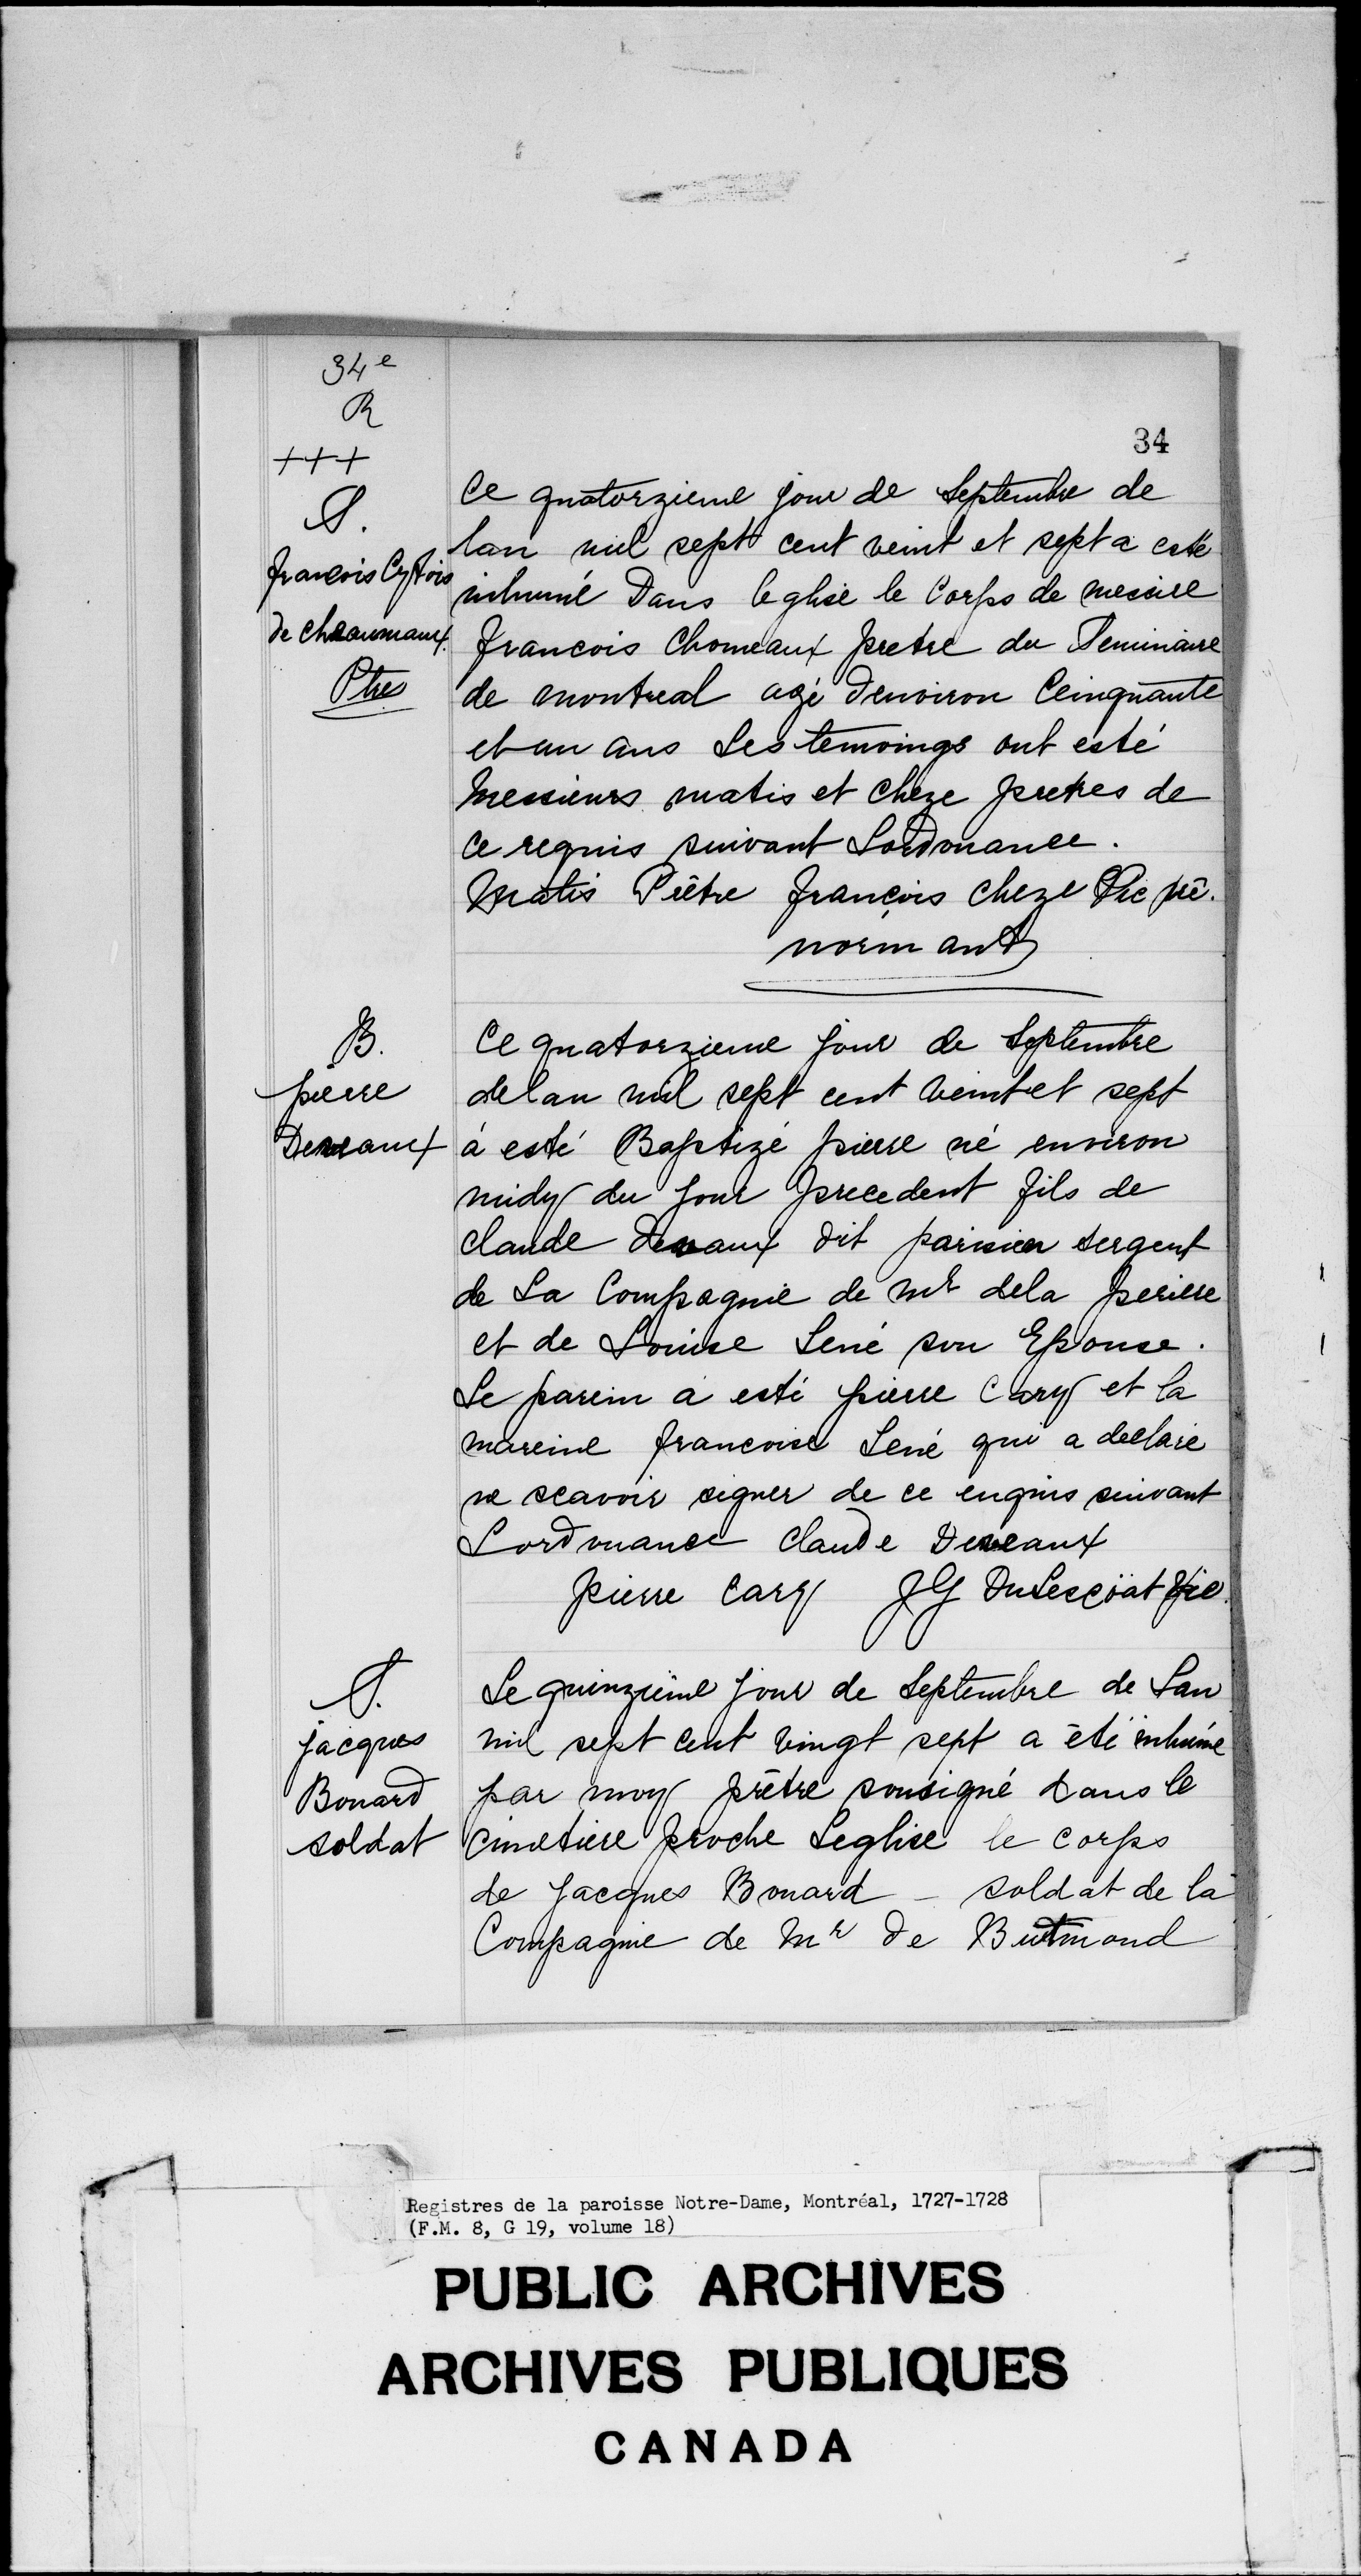 34e
R
34
+++
S.
francois Cytois
de chaumaux.
Ptre
Ce quatorzieme jour de Septembre de
lan mil sept cent veint et sept a esté
inhumé Dans leglise le Corps de messire
francois Chomeaux pretre du Seminaire
de montreal agé denviron Ceinquante
et un ans Les temoings ont esté
messieurs matis et Cheze pretres de
ce requis suivant Lordonance.
Matis Prêtre françois cheze Vic prê.
normant
B.
pierre
Deveaux
Ce quatorzieme jour de Septembre
de lan mil sept cent veint et sept
à esté Baptizé pierre né environ
midy du jour precedent fils de
claude Devaux dit parisien sergent
de La Compagnie de Mr dela periere
et de Louise Sené son Epouse.
Le parein a esté pierre Cary et la
mareine francoise Sené qui a declaré
ne scavoir signer de ce enquis suivant
Lordonance Claude Deveaux
pierre Cary JG DuLescöat Vic.
S.
jacques
Bonard
soldat
Le quinzième jour de Septembre de Lan
mil sept cent vingt sept a été inhumé
par moy prêtre sousigné dans le
cimetiere proche Leglise le corps
de jacques Bonard – soldat de la
Compagnie de Mr de Butmond
Registres de la paroisse Notre-Dame, Montréal, 1727-1728
(F.M. 8, G 19, volume 18)
PUBLIC ARCHIVES
ARCHIVES PUBLIQUES
CANADA